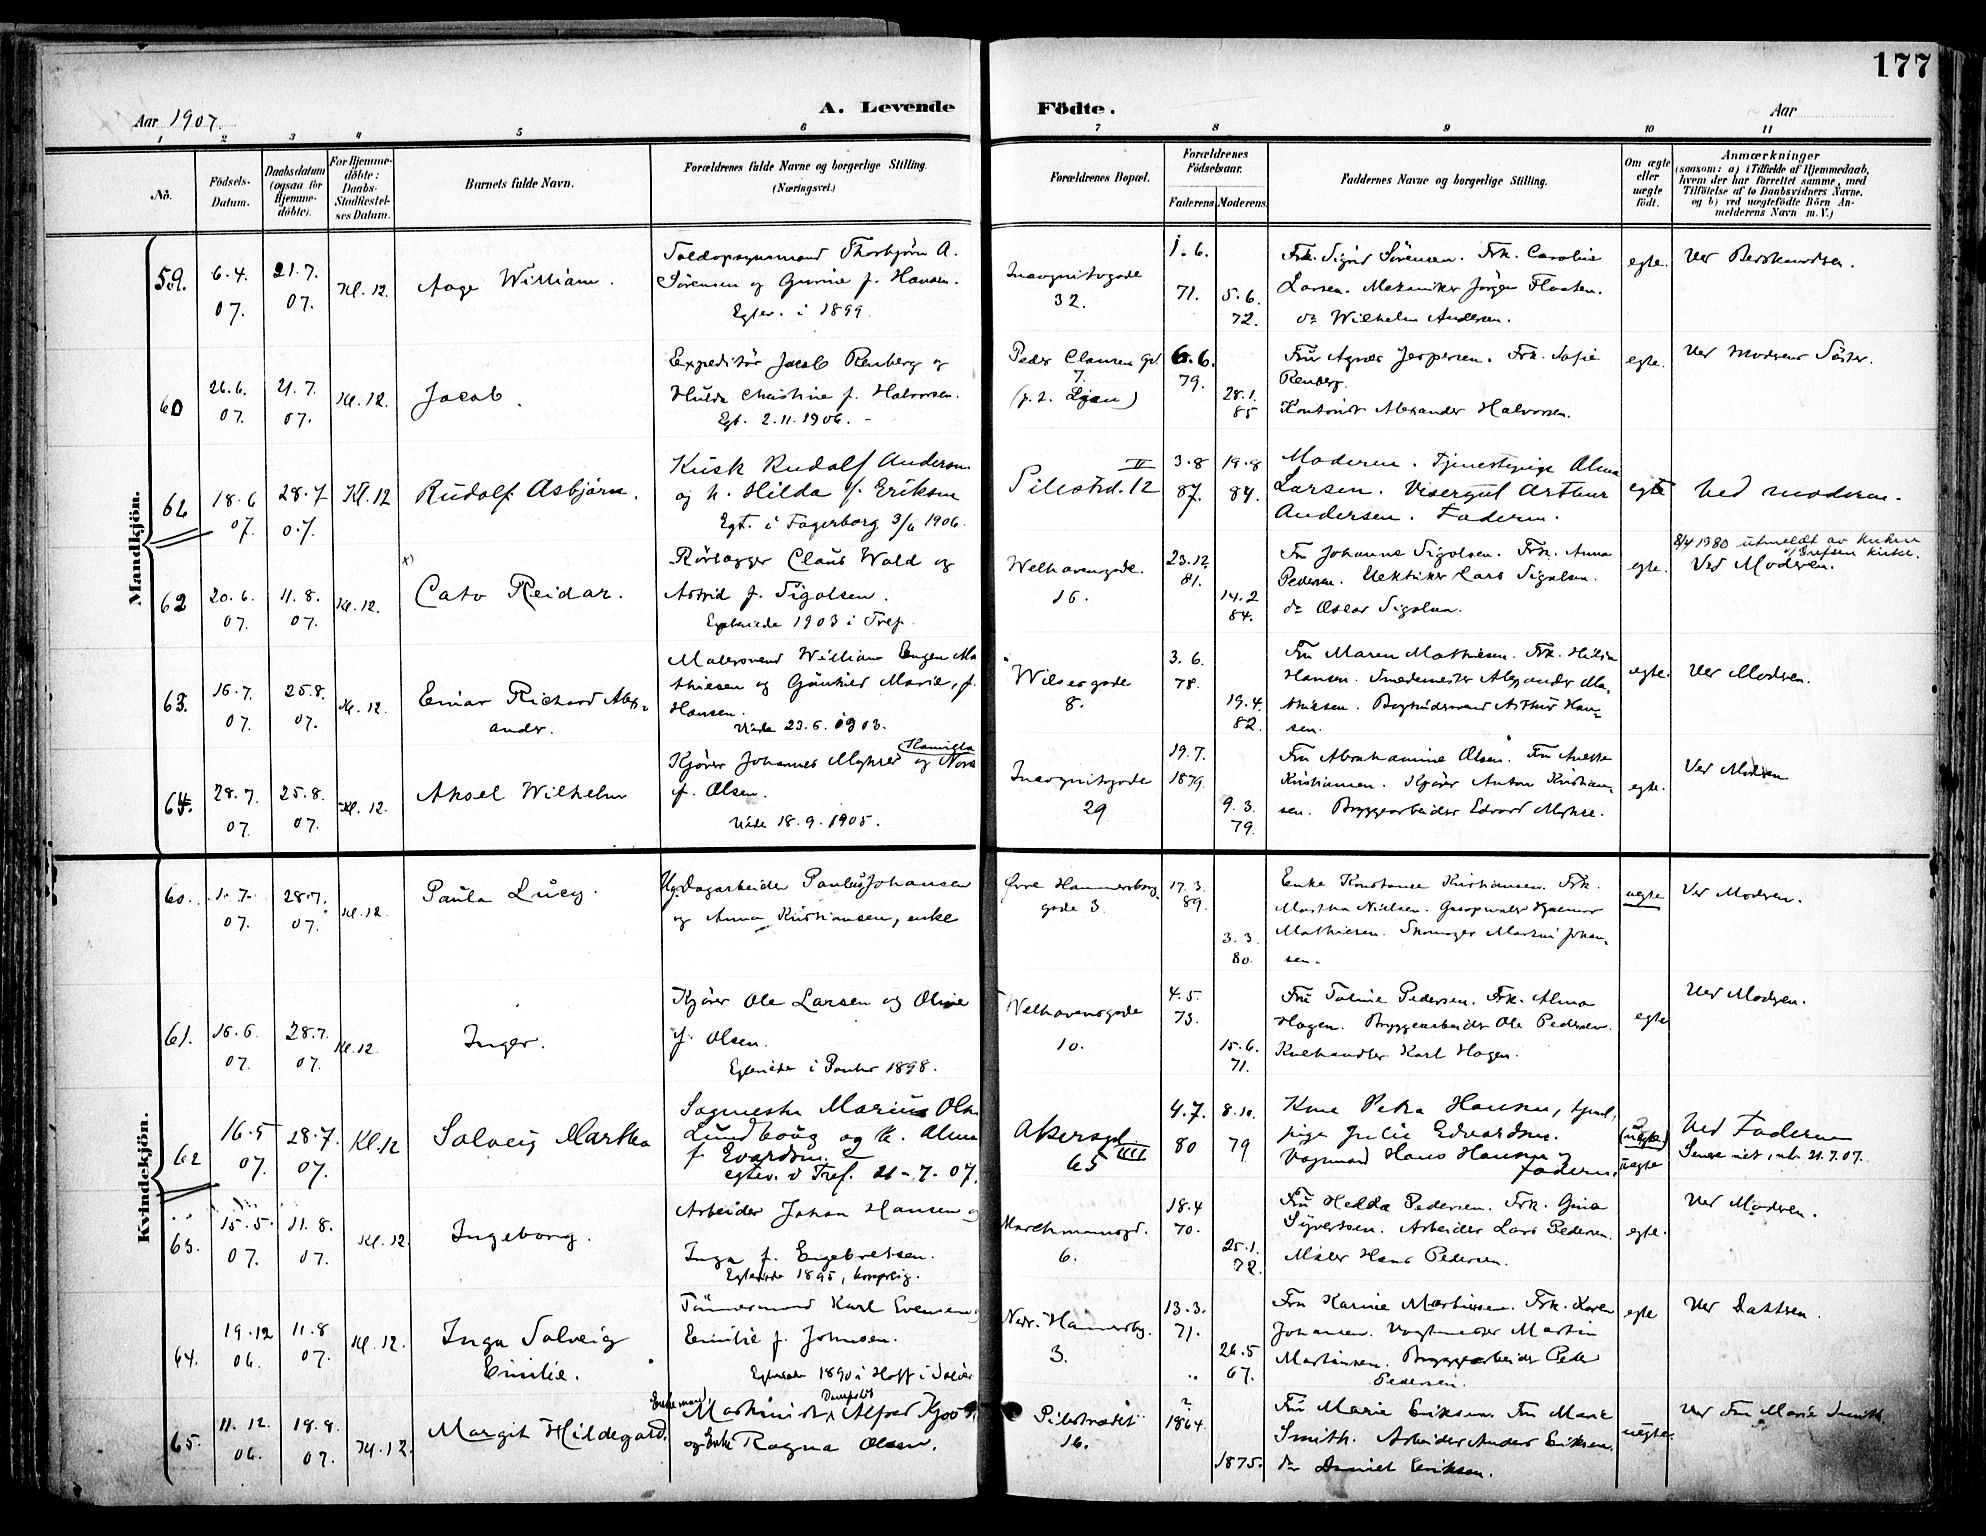 177
A. Levende Födte.
Aar 1907.
Aar
1 2 3 4 5 6 7 8 9 10 11
No.
Födsels-Datum.
Daabsdatum (ogsaa for Hjemme-döbte).
For Hjemme-döbte: Daabs-Stadfæstel-ses Datum.
Barnets fulde Navn.
Forældrenes fulde Navne og borgerlige Stilling. (Næringsvei.)
Forældrenes Bopæl.
Forældrenes Födselsaar.
Faderens. Moderens.
Faddernes Navne og borgerlige Stilling.
Om ægte eller uægte født.
Anmærkninger
(saasom: a) i Tilfælde af Hjemmedaab,
hvem der har forrettet samme, med
Tilföielse af to Daabsvidners Navne.
og b) ved uægtefödte Börn An-
melderens Navn m. V.)
Mandkjön.
59. 6.4. 07. 21.7. 07. Kl. 12. Aage William.
Toldopsynsmand Thorbjørn A.
Sørensen og Gunine f. Hansen.
Egtev. i 1899.
Incognitogade 32.
1.6. 71. 5.6. 72.
Frk. Sigrid Sørensen. Frk. Caroline
Larsen. Mekaniker Jørgen Flaaten.
do Wilhelm Andersen.
egte.
60 26.6. 07. 21.7. 07. Kl. 12. Jacob.
Expeditør Jacob Renberg og
Hulda Christine f. Halvorsen.
Egt. 2.11.1906. -
Peder Clausen gd. 7.
(p.t. Ljan)
6.6. 79. 28.1. 85
Fru Agnes Jespersen. Frk. Sofie
Renberg.
Kontorist Alexander Halvorsen.
egte. Ved Moderens Søster.
61 18.6 07. 28.7 07. Kl. 12 Rudolf Asbjørn.
Kusk Rudolf Andersen
og h. Hilda f. Eriksen
Egt. i Fagerborg 3/6 1906.
Pilestrd. 12 II
3.8 87. 19.8 84.
Moderen. Tjenestepige Alma
Larsen. Visergut Arthur
Andersen. Faderen.
egte Ved moderen.
62 20.6. 07. 11.8. 07. Kl. 12. x) Cato Reidar.
Rørlægger Claus Wold og
Astrid f. Sigolsen.
Egteviede 1903 i Tref.
Welhavensgade. 16.
23.12. 81. 14.2 84.
Fru Johanne Sigolsen. Frk. Anna
Pedersen. Lars Sigolsen.
do Oscar Sigolsen.
egte.
8/4 1980 utmeldt av kirken
v/ Grefsen kirke.
Ved Moderen.
63. 16.7. 07. 25.8. 07. Kl. 12. Einar Richard Alex-
ander.
Malersvend William Eugen Ma
thiesen og Gunhild Marie, f.
Hansen.
Viede 23.6.1903.
Wilsesgade 8.
3.6. 78. 19.4. 82.
Fru Maren Mathiesen. Frk. Hilda
Hansen. Smedemester Alexander Ma-
thiesen. Arthur Han-
sen.
egte. Ved Moderen.
64. 28.7. 07. 25.8. 07. Kl. 12. Aksel Wilhelm
Kjører Johannes Myhre og Nora
f. Olsen.
Viede 18.9.1905.
Incognitogade 29
19.7. 1879. 9.3. 79.
Fru Abrahamine Olsen. Fru Anette
Kristiansen. Kjører Anton Kristian-
sen. Bryggearbeider Edvard Myhre.
egte. Ved Moderen
Kvindekjön.
60. 1.7. 07. 28.7. 07. Kl. 12. Paula Lucy.
Ug. Dagarbeider Paulus Johansen
og Anna Kristiansen, enke
Øvre Hammersborg
gade 3.
17.3. 89. 3.3. 80.
Enke Konstanse Kristiansen. Frk.
Martha Nielsen. Gasopvaler Hjalmar
Mathiesen. Skomager Martin Johan-
sen.
uegte Ved Moderen.
61. 16.6. 07. 28.7. 07. Kl. 12. Inger.
Kjører Ole Larsen og Oline
f. Olsen.
Egteviede i Paulus 1898.
Welhavensgade 10.
4.5. 73. 15.6. 71.
Fru Tomine Pedersen. Frk. Alma
Hagen. Bryggearbeider Ole Pedersen.
Kulhandler Karl Hagen.
egte Ved Moderen.
62 16.5 07. 28.7. 07. Kl. 12 Solveig Martha
Sagmester Marius Olsen
Lundboug og h. Alma
f. Evardsen.
egtev. v Tref. 21-7.07.
Akersgd 65 IIII
4.7. 80 8.10. 79
Kone Petra Hansen, tjenst.
pige Julie Edvardsen.
Vognmand Hans Hansen og
faderen.
(uegte) uegte
Ved Faderen
21.7.07.
63. 15.5. 07. 11.8. 07. Kl. 12. Ingeborg.
Arbeider Johan Hansen og
Inga f. Engebretsen.
Egteviede 1895, borgerlig.
Marchmannsgd. 6.
18.4 70. 25.1. 72.
Fru Hedda Pedersen. Frk. Gina
Syvertsen. Arbeider Lars Pedersen.
Maler Hans Pedersen.
egte. Ved Moderen.
64. 19.12 06. 11.8 07. Kl. 12. Inga Solveig
Emilie.
Tømmermand Karl Evensen,
Emilie f. Johnsen.
Egteviede 1890 i Hoff i Solør
Nedr. Hammersbg. 3.
13.3. 71. 26.5 67.
Fru Karine Martinsen. Frk. Karen
Johansen. Vogtmester Martin
Martinsen. Bryggearbeider Peder
Pedersen.
egte Ved Datteren.
65. 11.12. 06. 18.8. 07. Kl. 12. Margit Hildegard.
Enkemand, Maskinist Alfred
og Enke Ragna Olsen.
Pilestrædet 16.
? 1864. 1875.
Fru Marie Eriksen. Fru Marie
Smith. Arbeider Anders Eriksen.
do Daniel Eriksen.
uegte. Ved Fru Marie Smith.